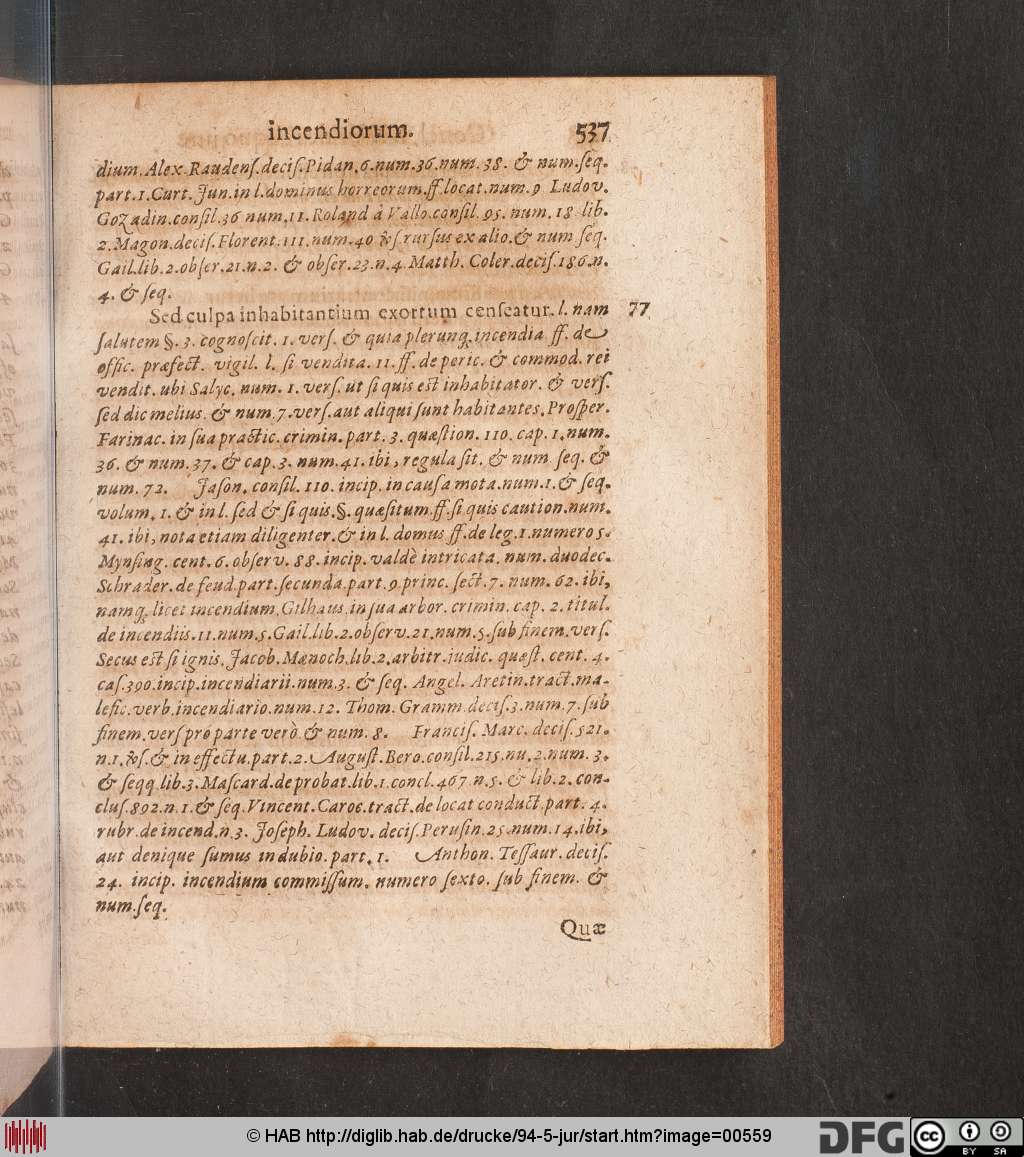 incendiorum. 537
dium. Alex. Raudenſ. deciſ. Pidan. 6. num. 36. num. 38. & num. ſeq.
part. 1. Curt. Jun. in l. dominus horreorum. ff. locat. num. 9 Ludov.
Gozadin. conſil. 36 num. 11. Roland à Vallo. conſil. 95. num. 18 lib.
2. Magon. deciſ. Florent. 111. num. 40 & ſ rurſus ex alio. & num ſeq.
Gail. lib. 2. obſer. 21. n. 2. & obſer. 23. n. 4. Matth. Coler. deciſ. 186. n.
4. & ſeq.
Sed culpa inhabitantium exortum cenſeatur. l. nam 77
ſalutem §. 3. cognoſcit. 1. verſ. & quia plerunq; incendia ff. de
offic. præfect. vigil. l. ſi vendita. 11. ff. de peric. & commod. rei
vendit. ubi Salyc. num. 1. verſ. ut ſi quis eſt inhabitator. & verſ.
ſed dic melius. & num. 7. verſ. aut aliqui ſunt habitantes. Proſper.
Farinac. in ſua practic. crimin. part. 3. quæſtion. 110. cap. 1. num.
36. & num. 37. & cap. 3. num. 41. ibi, regula ſit. & num. ſeq. &
num. 72. Jaſon. conſil. 110. incip. in cauſa mota. num. 1. & ſeq.
volum. 1. & in l. ſed & ſi quis. §. quæſitum. ff. ſi quis caution. num.
41. ibi, nota etiam diligenter. & in l. domus ff. de leg. 1. numero 5.
Mynſing. cent. 6. obſerv. 88. incip. valdè intricata. num. duodec.
Schrader. de feud. part. ſecunda. part. 9. princ. ſect. 7. num. 62. ibi,
namq; licet incendium. Gilhaus. in ſua arbor. crimin. cap. 2. titul.
de incendiis. 11. num. 5. Gail. lib. 2. obſerv. 21. num. 5. ſub finem. verſ.
Secus eſt ſi ignis. Jacob. Mænoch. lib. 2. arbitr. judic. quæſt. cent. 4.
caſ. 390. incip. incendiarii. num. 3. & ſeq. Angel. Aretin. tract. ma-
lefic. verb. incendiario. num. 12. Thom. Gramm. deciſ. 3. num. 7. ſub
finem. verſ pro parte verò & num. 8. Franciſ. Marc. deciſ. 521.
n. 1. & ſ. & in effectu. part. 2. Auguſt. Bero. conſil. 215. nu. 2. num. 3.
& ſeqq. lib. 3. Maſcard. de probat. lib. 1. concl. 467. n. 5. & lib. 2. con-
cluſ. 892. n. 1. & ſeq. Vincent. Caroc. tract. de locat conduct. part. 4.
rubr. de incend. n. 3. Joſeph. Ludov. deciſ. Peruſin. 25. num. 14. ibi,
aut denique ſumus in dubio. part. 1. Anthon. Teſſaur. deciſ.
24. incip. incendium commiſſum. numero ſexto. ſub finem. &
num. ſeq.
Quæ
© HAB http://diglib.hab.de/drucke/94-5-jur/start.htm?image=00559
DFG cc BY SA